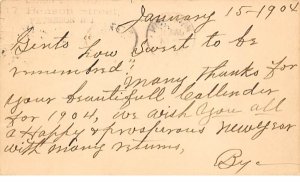 January 15-1904
Gents "how Sweet to be
rememberd" Many thanks for
your beautifull Callender
for 1904, we wish you all
a Happy & prosperous New Year
with many returns,
By-